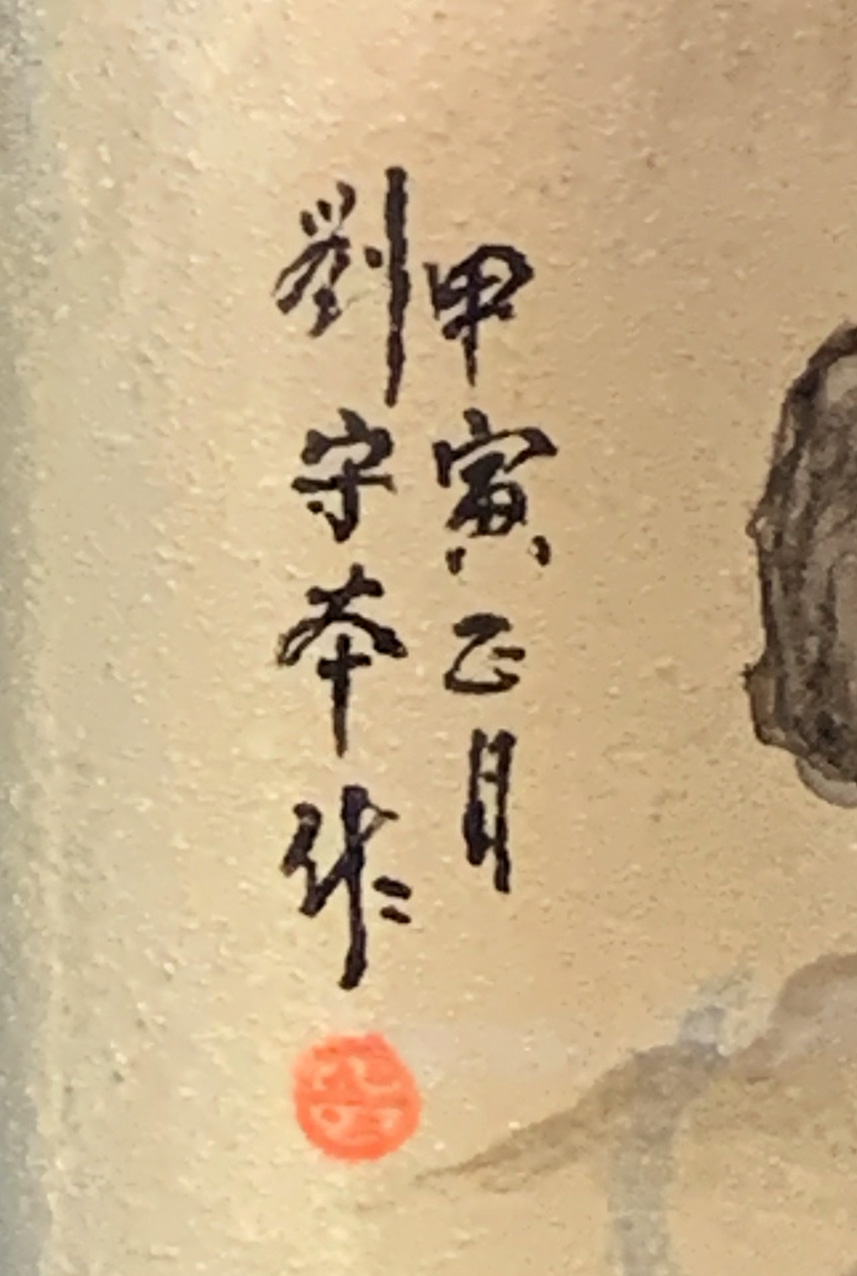 甲寅正月
劉守本作